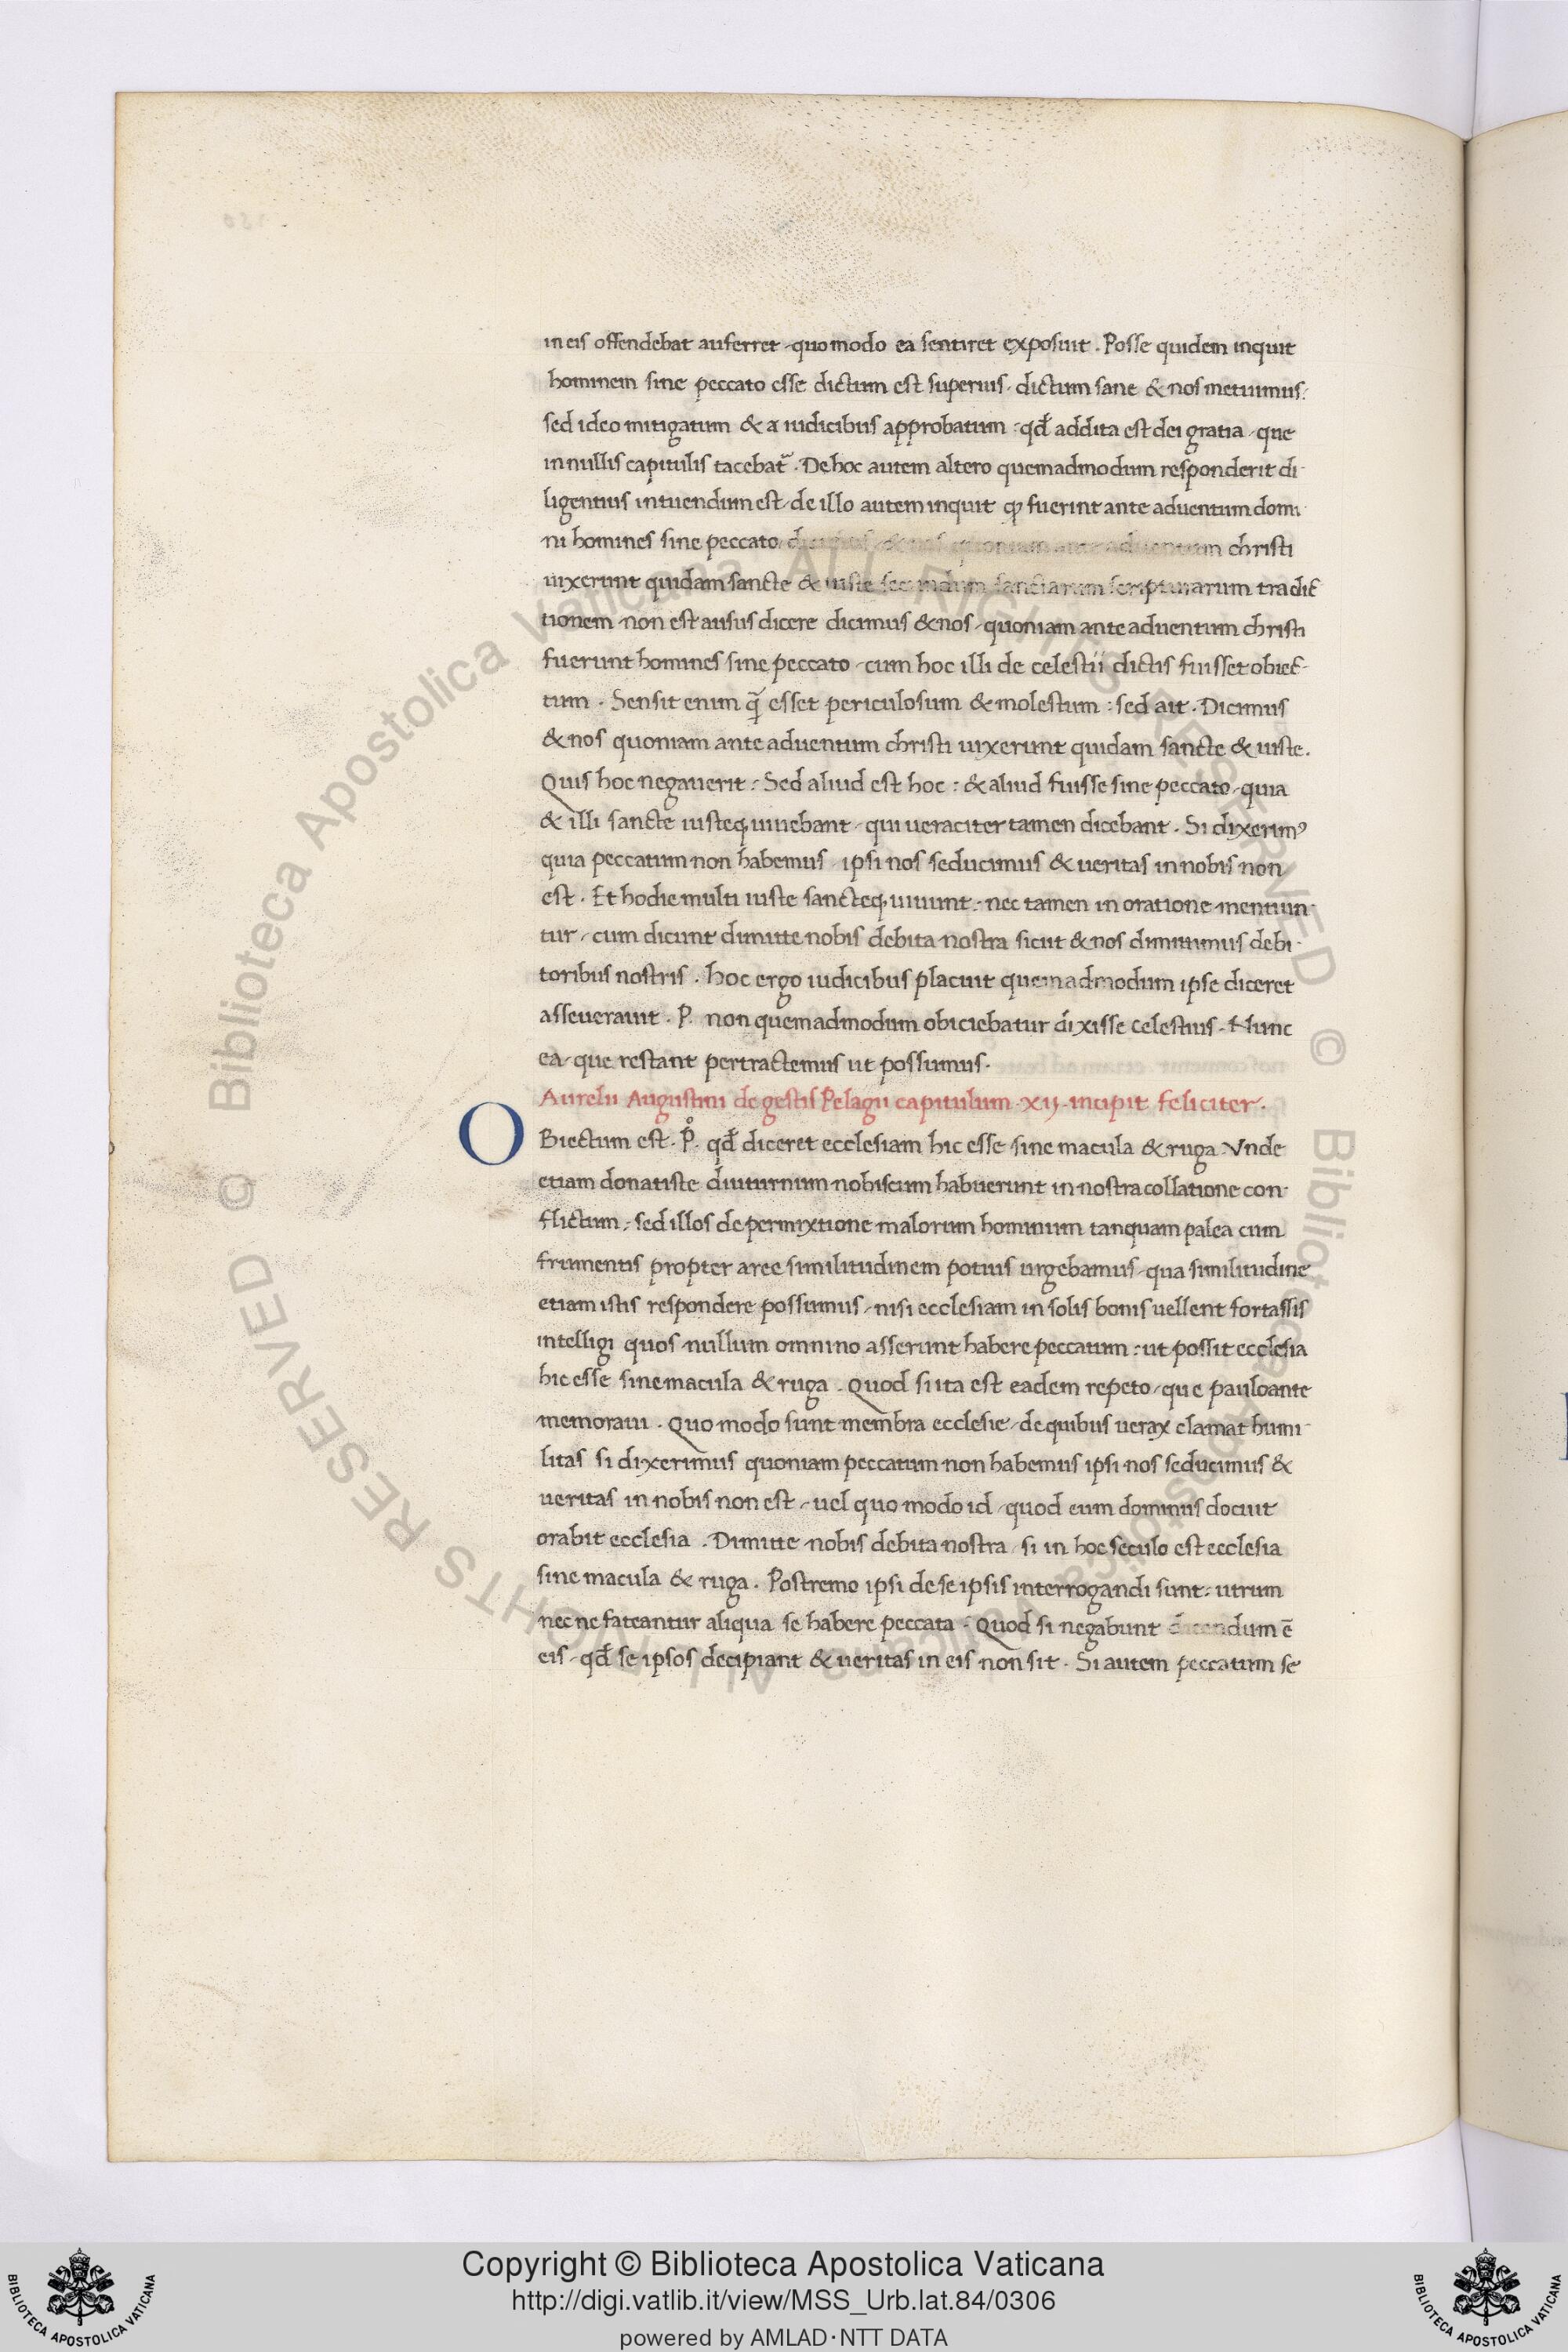 in eis offendebat auferret quomodo ea sentiret exposuit. Posse quidem inquit
hominem sine peccato esse dictum est superius. dictum sane & nos metuimus:
sed ideo mitigatum & a iudicibus approbatum: qđ addita est dei gratia que
in nullis capitulis tacebat᷑. De hoc autem altero quemadmodum responderit di-
ligentius intuendum est de illo autem inquit ꝙ fuerint ante aduentum domi-
ni homines sine peccato dicimus & nos quoniam ante aduentum christi
uixerunt quidam sancte & iuste secundum sanctarum scripturarum tradic̄
tionem non est ausus dicere dicimus & nos quoniam ante aduentum christi
fuerunt homines sine peccato cum hoc illi de celestii dictis fuisset obiec-
tum. Sensit enim q̄ esset periculosum & molestum: sed ait. Dicimus
& nos quoniam ante aduentum christi uixerunt quidam sancte & iuste.
Quis hoc negauerit: Sed aliud est hoc: & aliud fuisse sine peccato, quia
& illi sancte iusteq; uiuebant qui ueraciter tamen dicebant. Si dixerimꝰ
quia peccatum non habemus ipsi nos seducimus & ueritas in nobis non
est. Et hodie multi iuste sancteq; uiuunt: nec tamen in oratione mentiun-
tur, cum dicunt dimitte nobis debita nostra sicut & nos dimittimus debi-
toribus nostris. hoc ergo iudicibus placuit quemadmodum ipse diceret
asseuerauit. P. non quemadmodum obiciebatur dixisse celestius. Nunc
ea, que restant pertractemus ut possumus.
Aurelii Augustini de gestis Pelagii capitulum xij incipit feliciter.
OBiectum est. P̊. qđ diceret ecclesiam hic esse sine macula & ruga. Vnde
etiam donatiste diuturnum nobiscum habuerunt in nostra collatione con-
flictum: sed illos de permixtione malorum hominum tanquam palea cum
frumentis propter aree similitudinem potius urgebamus, qua similitudine
etiam istis respondere possumus, nisi ecclesiam in solis bonis uellent fortassis
intelligi quos nullum omnino asserunt habere peccatum: ut possit ecclesia
hic esse sine macula & ruga. Quod si ita est eadem repeto, que pauloante
memoraui. Quo modo sunt membra ecclesie, de quibus uerax clamat humi-
litas si dixerimus quoniam peccatum non habemus ipsi nos seducimus &
ueritas in nobis non est, uel quo modo id, quod eum dominus docuit
orabit ecclesia. Dimitte nobis debita nostra, si in hoc seculo est ecclesia
sine macula & ruga. Postremo ipsi de se ipsis interrogandi sunt: utrum
nec ne fateantur aliqua se habere peccata. Quod si negabunt dicendum ē
eis, qđ se ipsos decipiant & ueritas in eis non sit. Si autem peccatum se
© Biblioteca Apostolica Vaticana ALL RIGHTS RESERVED © Biblioteca Apostolica Vaticana ALL RIGHTS RESERVED
Copyright © Biblioteca Apostolica Vaticana
http://digi.vatlib.it/view/MSS_Urb.lat.84/0306
powered by AMLAD·NTT DATA
BIBLIOTECA APOSTOLICA VATICANA
BIBLIOTECA APOSTOLICA VATICANA